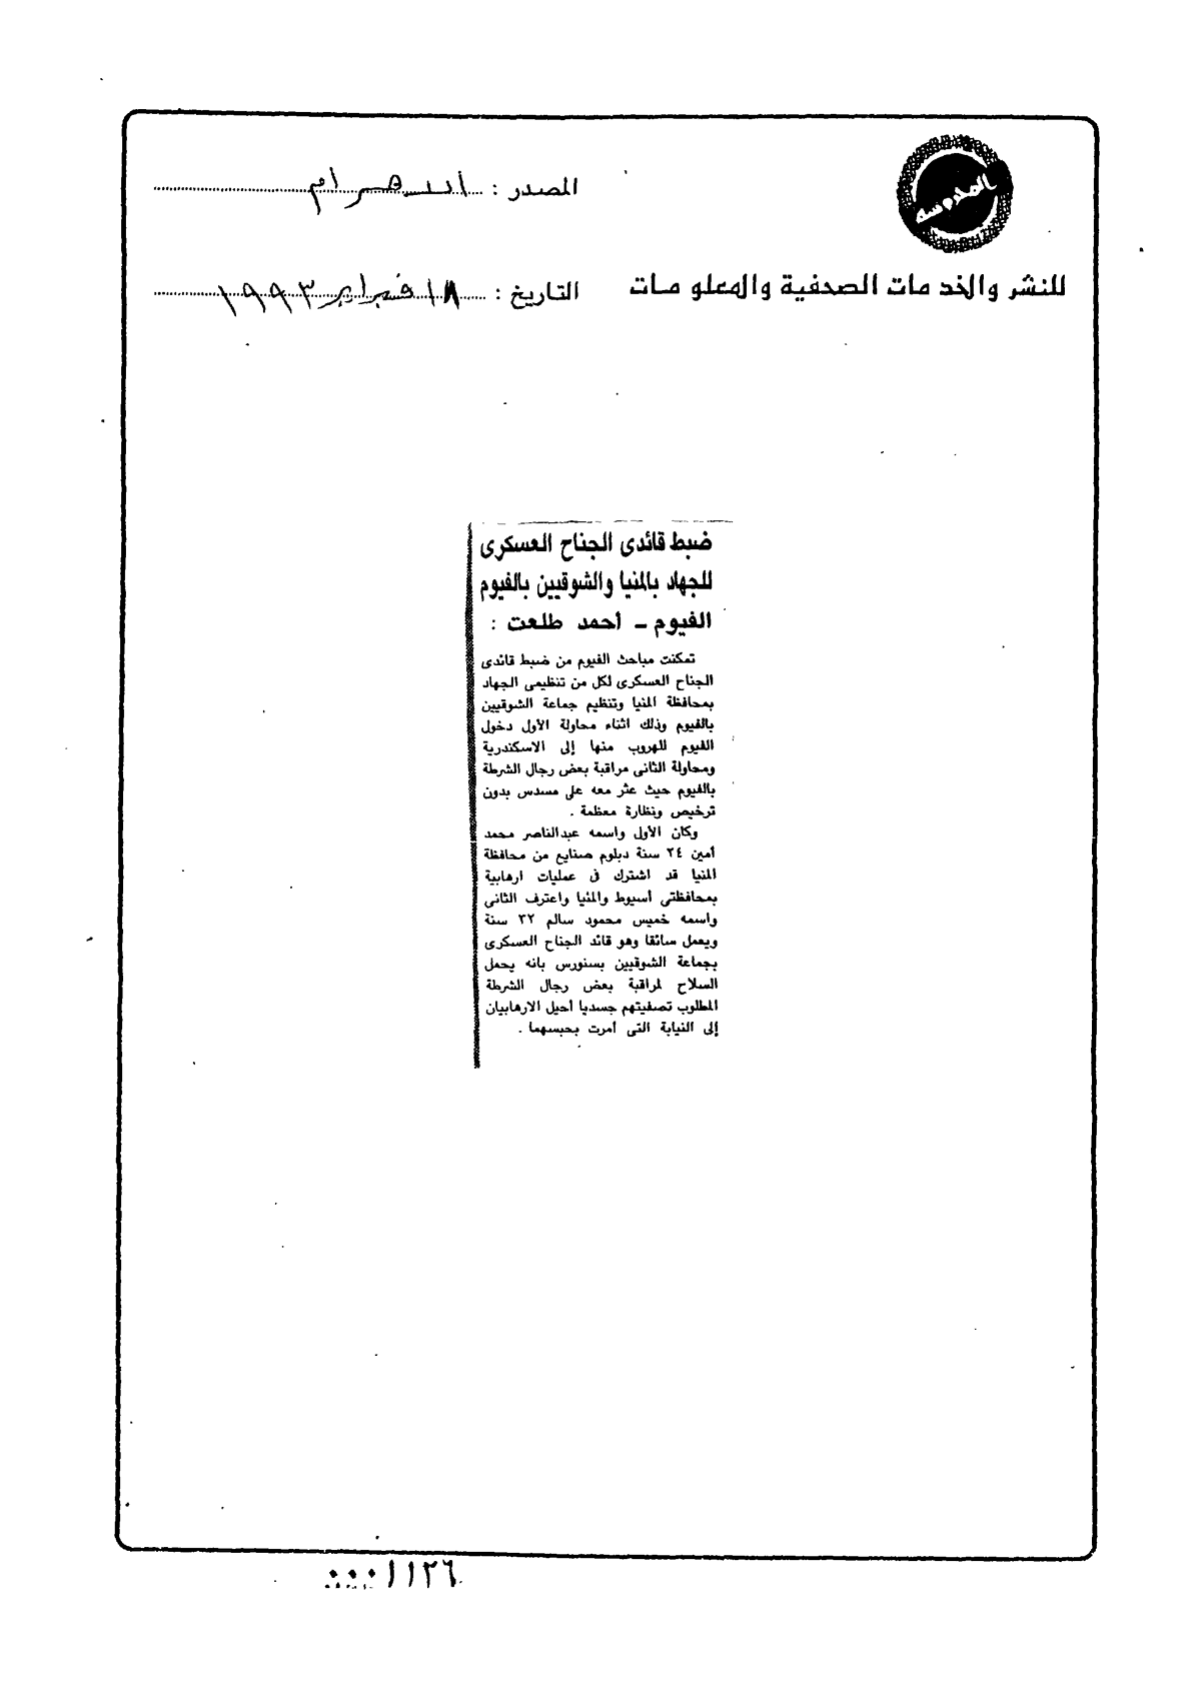 المحروسة
المصدر : الأهرام
للنشر والخدمات الصحفية والمعلومات
التاريخ : ١٨ فبراير ١٩٩٣
ضبط قائدى الجناح العسكرى
للجهاد بالمنيا والشوقيين بالفيوم
الفيوم ــ أحمد طلعت :
تمكنت مباحث الفيوم من ضبط قائدى
الجناح العسكرى لكل من تنظيمى الجهاد
بمحافظة المنيا وتنظيم جماعة الشوقيين
بالفيوم وذلك اثناء محاولة الأول دخول
الفيوم للهروب منها إلى الاسكندرية
ومحاولة الثانى مراقبة بعض رجال الشرطة
بالفيوم حيث عثر معه على مسدس بدون
ترخيص ونظارة معظمة .
وكان الأول واسمه عبدالناصر محمد
أمين ٢٤ سنة دبلوم صنايع من محافظة
المنيا قد اشترك فى عمليات ارهابية
بمحافظتى أسيوط والمنيا واعترف الثانى
واسمه خميس محمود سالم ٣٢ سنة
ويعمل سائقا وهو قائد الجناح العسكرى
بجماعة الشوقيين بسنورس بانه يحمل
السلاح لمراقبة بعض رجال الشرطة
المطلوب تصفيتهم جسديا أحيل الارهابيان
إلى النيابة التى أمرت بحبسهما .
٠٠٠١١٢٦